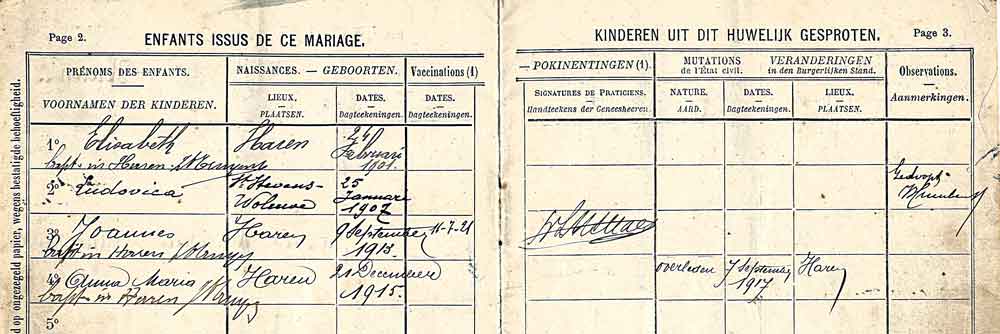 Page 2.
ENFANTS ISSUS DE CE MARIAGE.
PRÉNOMS DES ENFANTS.
VOORNAMEN DER KINDEREN.
NAISSANCES. — GEBOORTEN.
LIEUX.
PLAATSEN.
DATES.
Dagteekeningen.
Vaccinations (1)
DATES.
Dagteekeningen.
1° Elisabeth Haren 24 Februari 1901.
bapt. in Haren
2° Ludovica St Stevens-Woluwe 25 Januari 1907
3° Joannes Haren 9 September 1913 11-7-21
bapt in Haren
4° Anna Maria Haren 21 December 1915.
bapt in Haren
5°
d op ongezegeld papier, wegens bestatigde behoeftigheid.
KINDEREN UIT DIT HUWELIJK GESPROTEN.
Page 3.
— POKINENTINGEN (1).
SIGNATURES DE PRATICIENS.
Handteekens der Geneesheeren.
MUTATIONS
de l'État civil.
VERANDERINGEN
in den Burgerlijken Stand.
NATURE.
AARD.
DATES.
Dagteekeningen.
LIEUX.
PLAATSEN.
Observations.
Aanmerkingen.
Gedoopt
overleden 7 September 1917 Haren